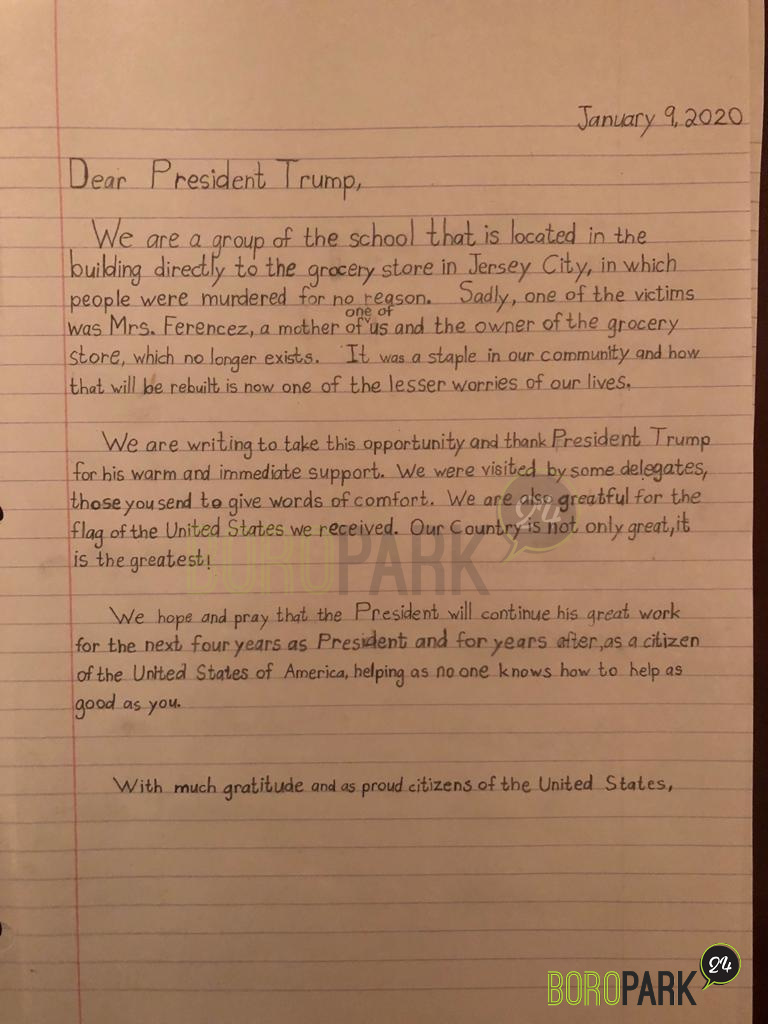 January 9, 2020
Dear President Trump,
We are a group of the school that is located in the
building directly to the grocery store in Jersey City, in which
people were murdered for no reason. Sadly, one of the victims
was Mrs. Ferencez, a mother of one of us and the owner of the grocery
store, which no longer exists. It was a staple in our community and how
that will be rebuilt is now one of the lesser worries of our lives.
We are writing to take this opportunity and thank President Trump
for his warm and immediate support. We were visited by some delegates,
those you send to give words of comfort. We are also greatful for the
flag of the United States we received. Our Country is not only great, it
is the greatest!
We hope and pray that the President will continue his great work
for the next four years as President and for years after, as a citizen
of the United States of America, helping as no one knows how to help as
good as you.
With much gratitude and as proud citizens of the United States,
BOROPARK 24
BOROPARK 24